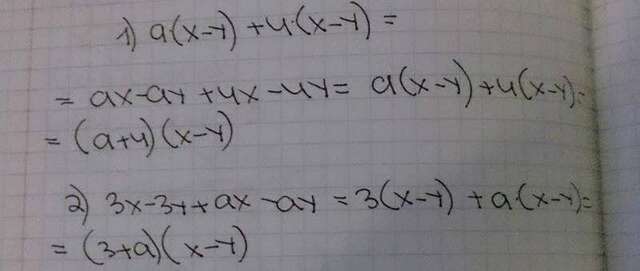 1) a·(x-y) + 4·(x-y) =
= ax-ay+4x-4y = a(x-y)+4(x-y)=
= (a+4)(x-y)
2) 3x-3y+ax-ay = 3(x-y) + a·(x-y)=
= (3+a)(x-y)